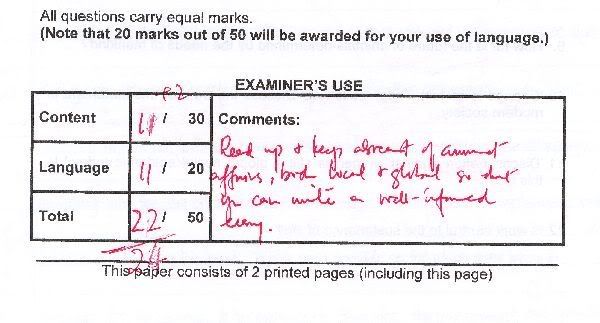 All questions carry equal marks.
(Note that 20 marks out of 50 will be awarded for your use of language.)
+2
EXAMINER'S USE
Content 11 / 30 Comments:
Read up & keep abreast of current
Language 11 / 20 affairs, both local & global so that
you can write a well-informed
Total 22 / 50 essay.
24
This paper consists of 2 printed pages (including this page)